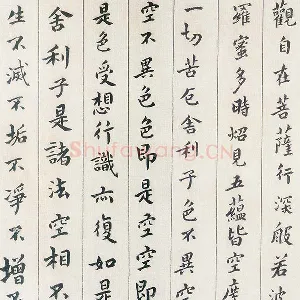 觀自在菩薩行深般若波
羅蜜多時炤見五蘊皆空度
一切苦厄舍利子色不異空
空不異色色即是空空即
是色受想行識亦復如是
舍利子是諸法空相不
生不滅不垢不淨不增